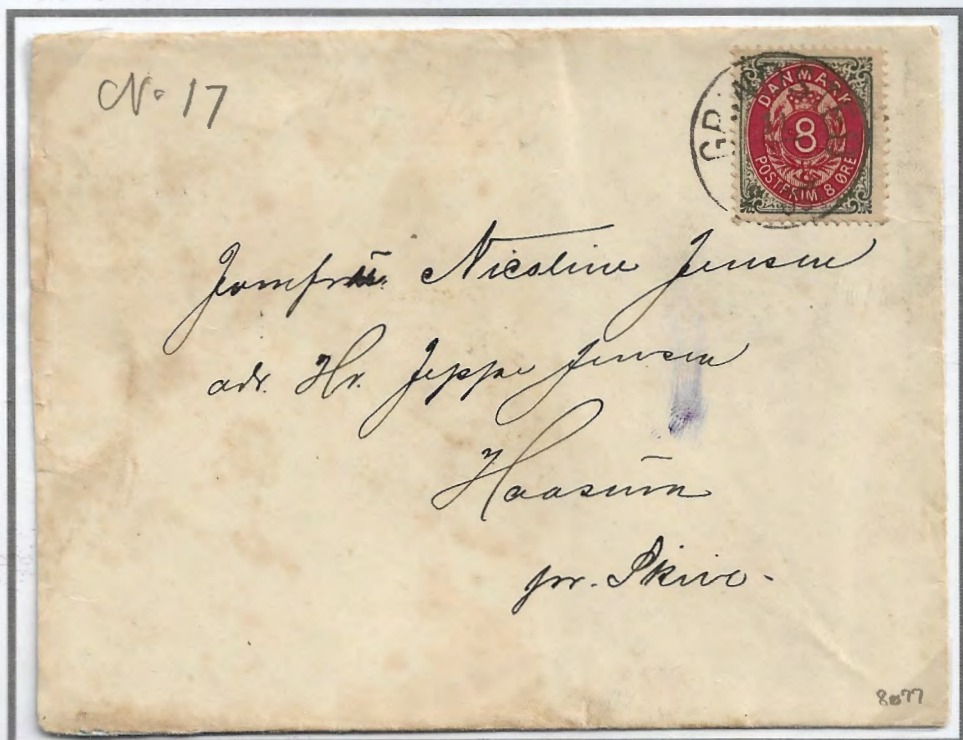 No 17
DANMARK
8
POSTFRIM 8 ØRE
Jomfru. Nicoline Jensen
adr. Hr. Jeppe Jensen
Haasum
pr. Skive.
8077